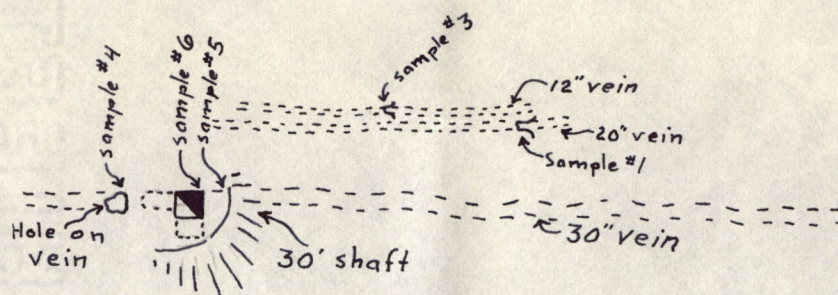 sample #4
sample #6
sample #5
sample #3
12" vein
20" vein
Sample #1
Hole on
vein
30' shaft
30" vein